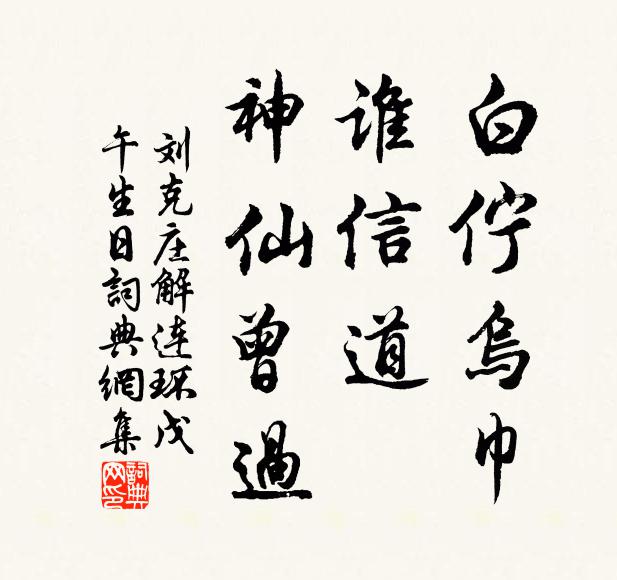 白伫乌巾
谁信道
神仙曾過
刘克庄解连环戊
午生日詞典網集
詞典网印